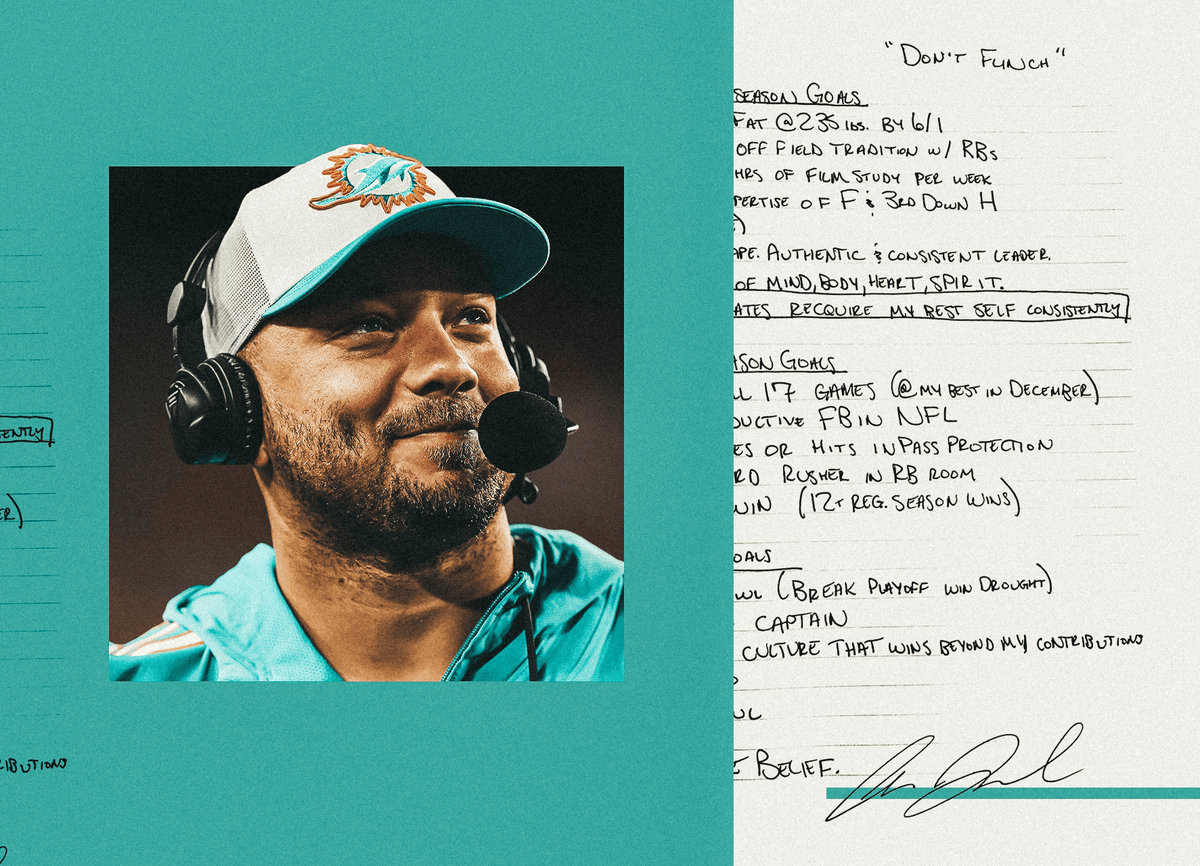 ENTLY
ER)
RIBUTIONS
"DON'T FLINCH"
SEASON GOALS
FAT @235 lbs. BY 6/1
OFF FIELD TRADITION W/ RBs
HRS OF FILM STUDY PER WEEK
PERTISE OF F & 3RD DOWN H
APE. AUTHENTIC & CONSISTENT LEADER.
OF MIND, BODY, HEART, SPIRIT.
ATES RECQUIRE MY BEST SELF CONSISTENTLY
SON GOALS
LL 17 GAMES (@ MY BEST IN DECEMBER)
DUCTIVE FB IN NFL
ES OR HITS IN PASS PROTECTION
RD RUSHER IN RB ROOM
WIN (12+ REG. SEASON WINS)
OALS
WL (BREAK PLAYOFF WIN DROUGHT)
CAPTAIN
CULTURE THAT WINS BEYOND MY CONTRIBUTIONS
UL
BELIEF.